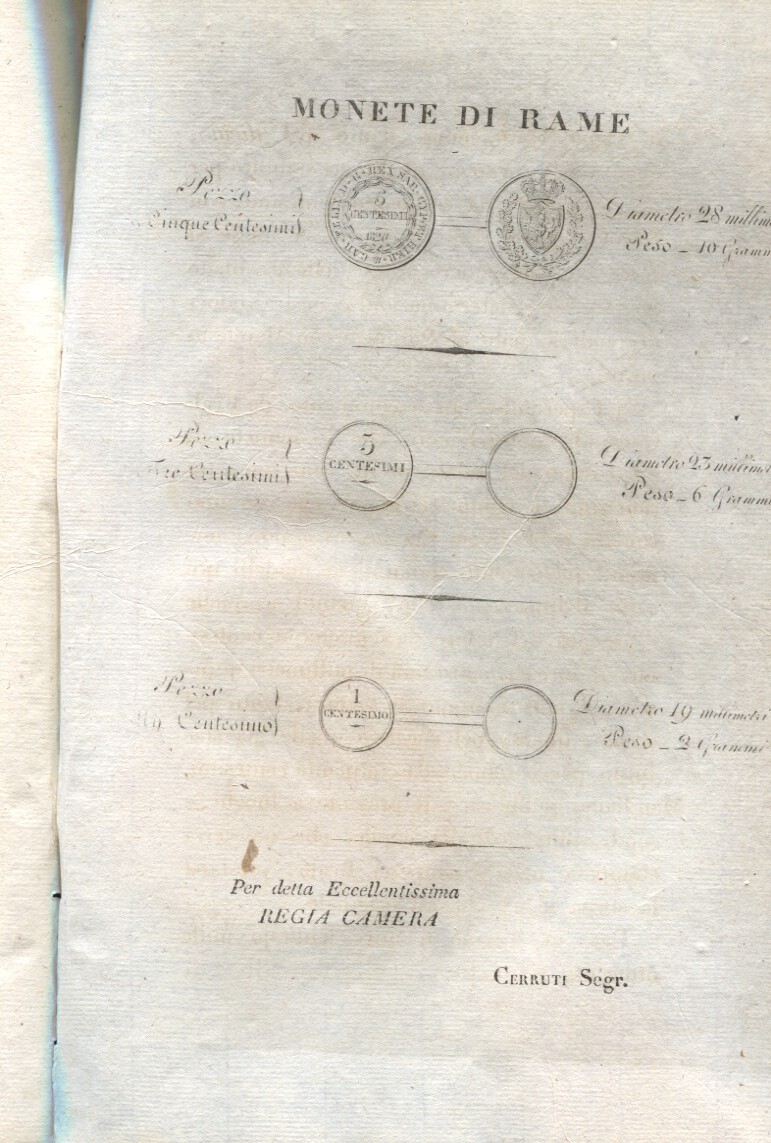 MONETE DI RAME
Pezzo
Cinque Centesimi
CAR·FELIX D·G·REX SAR·CYP·ET HIER·
5
CENTESIMI
1826
Diametro 28 millim
Peso – 10 Gramm
Pezzo
Tre Centesimi
3
CENTESIMI
Diametro 23 millimet
Peso – 6 Grammi
Pezzo
Un Centesimo
1
CENTESIMO
Diametro 19 millimetri
Peso – 2 Grammi
Per detta Eccellentissima
REGIA CAMERA
CERRUTI Segr.